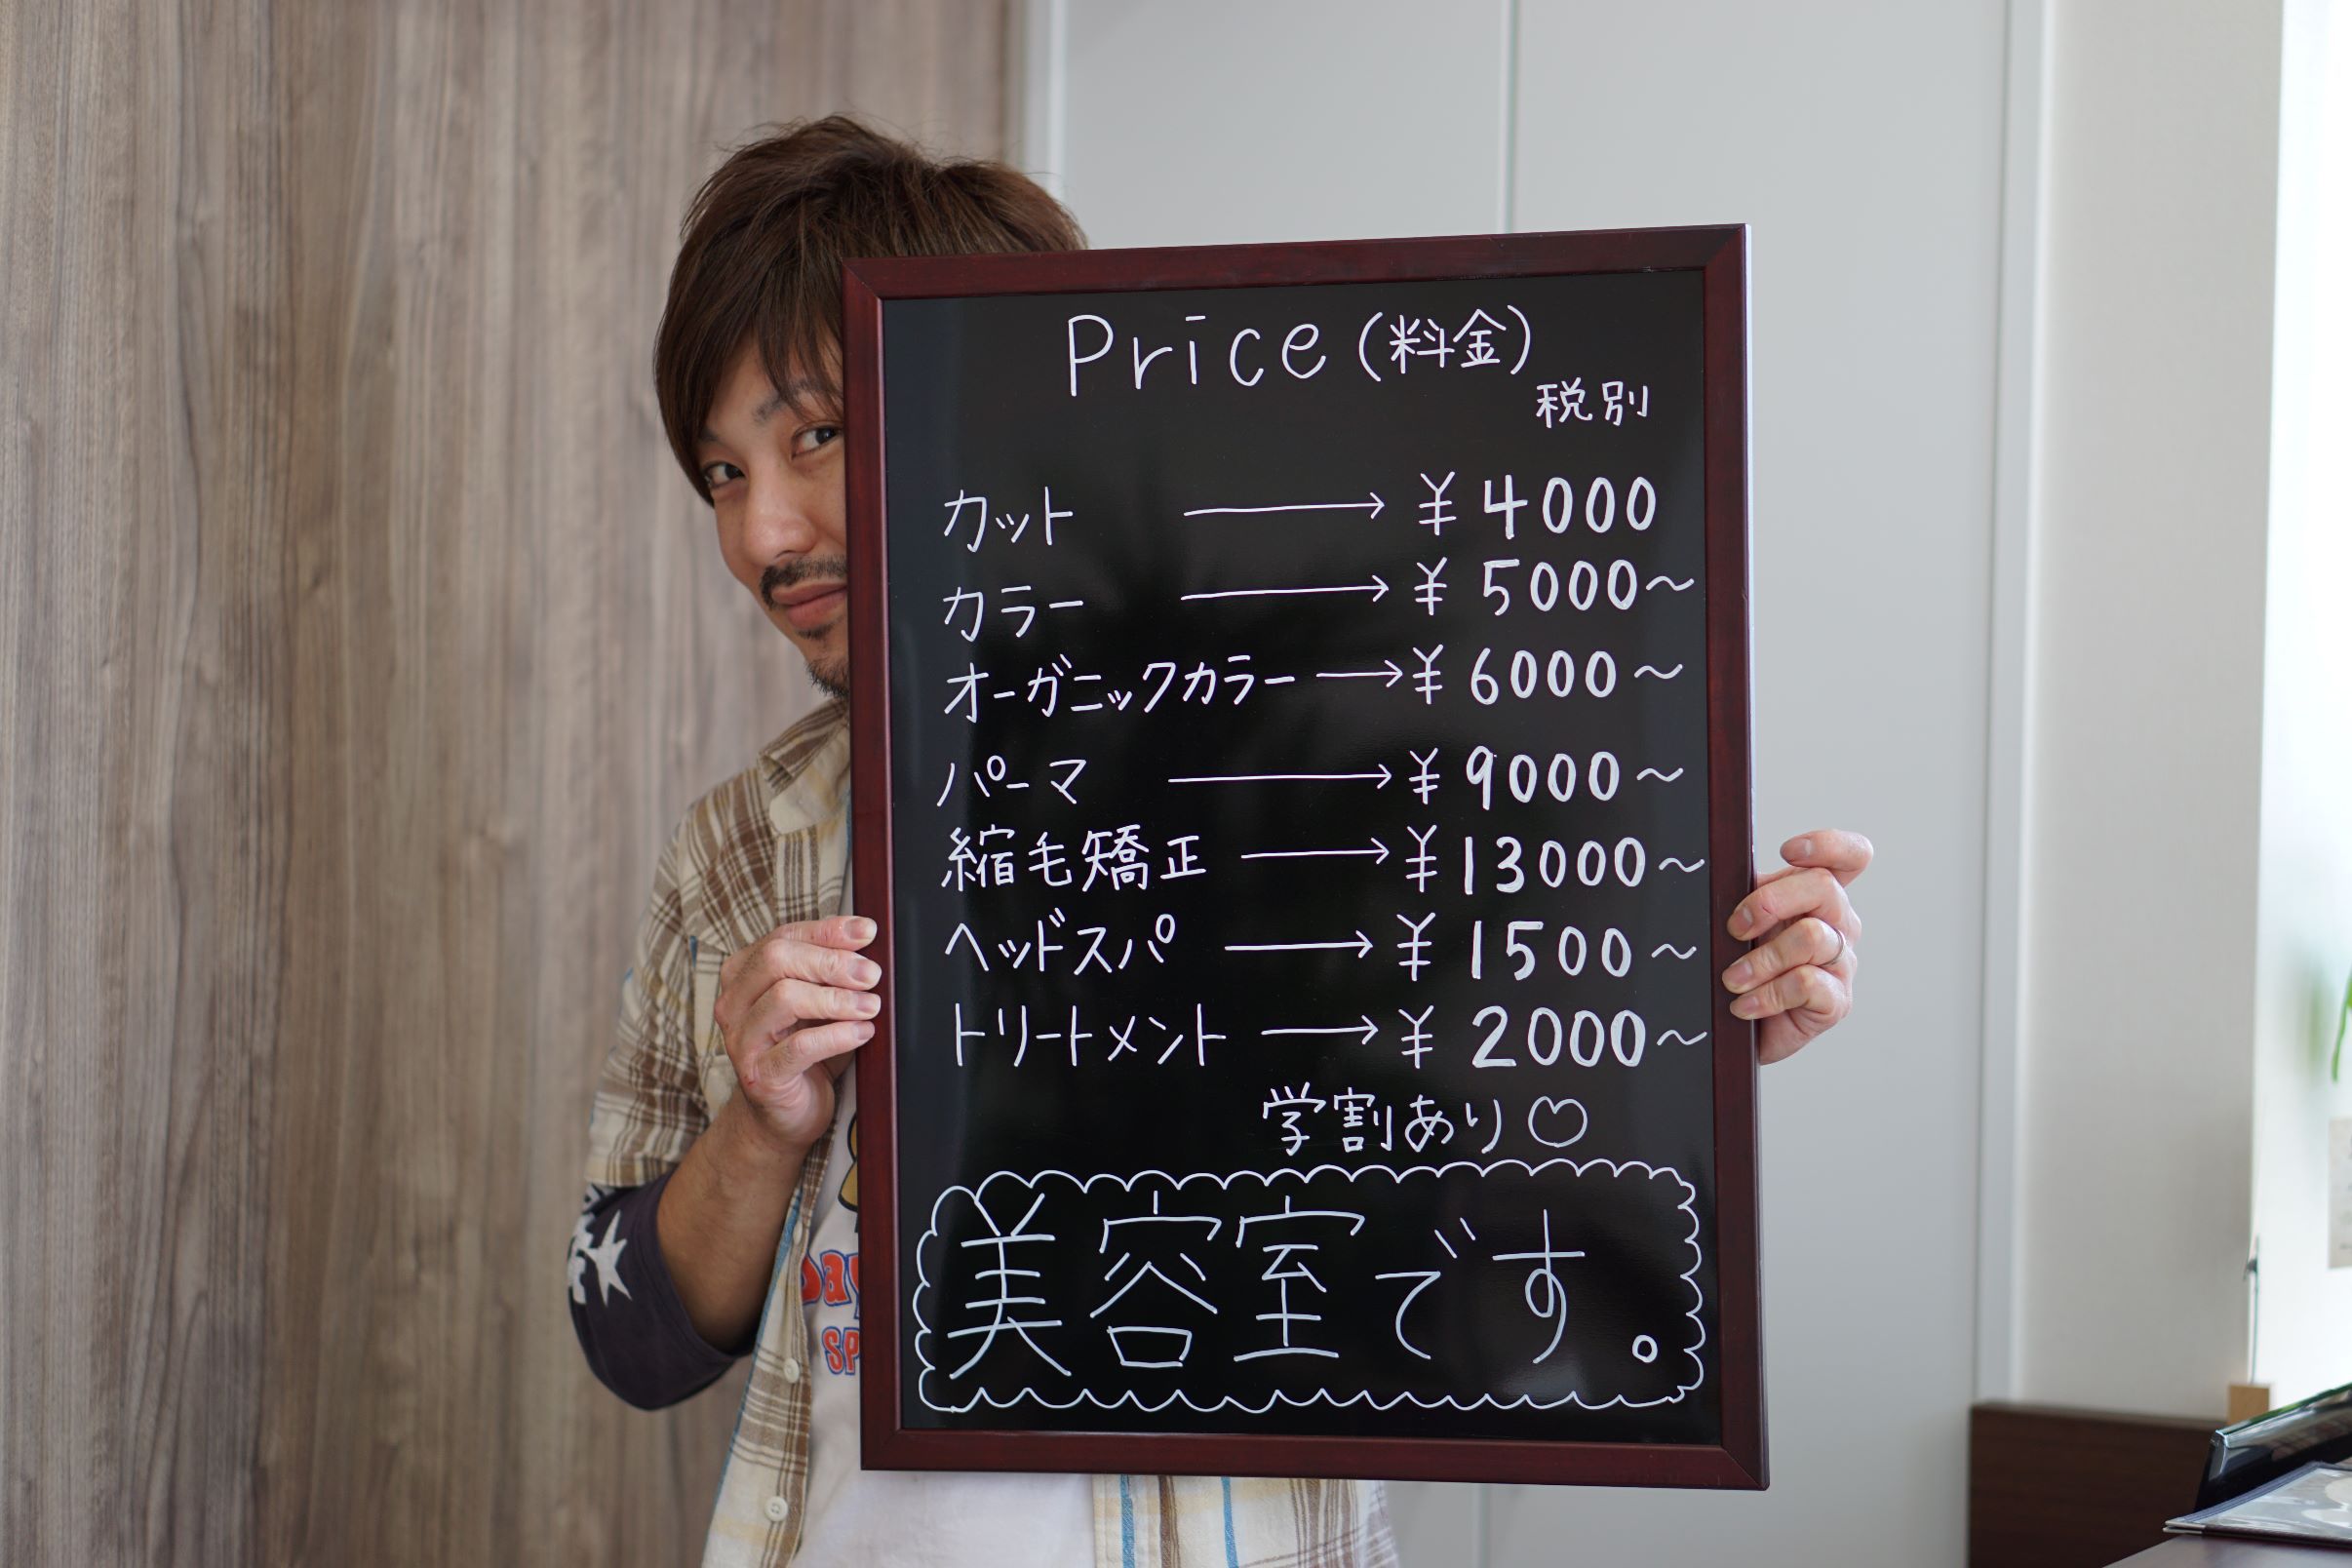 Price (料金)
税別
カット → ¥4000
カラー → ¥5000〜
オーガニックカラー → ¥6000〜
パーマ → ¥9000〜
縮毛矯正 → ¥13000〜
ヘッドスパ → ¥1500〜
トリートメント → ¥2000〜
学割あり♡
美容室です。